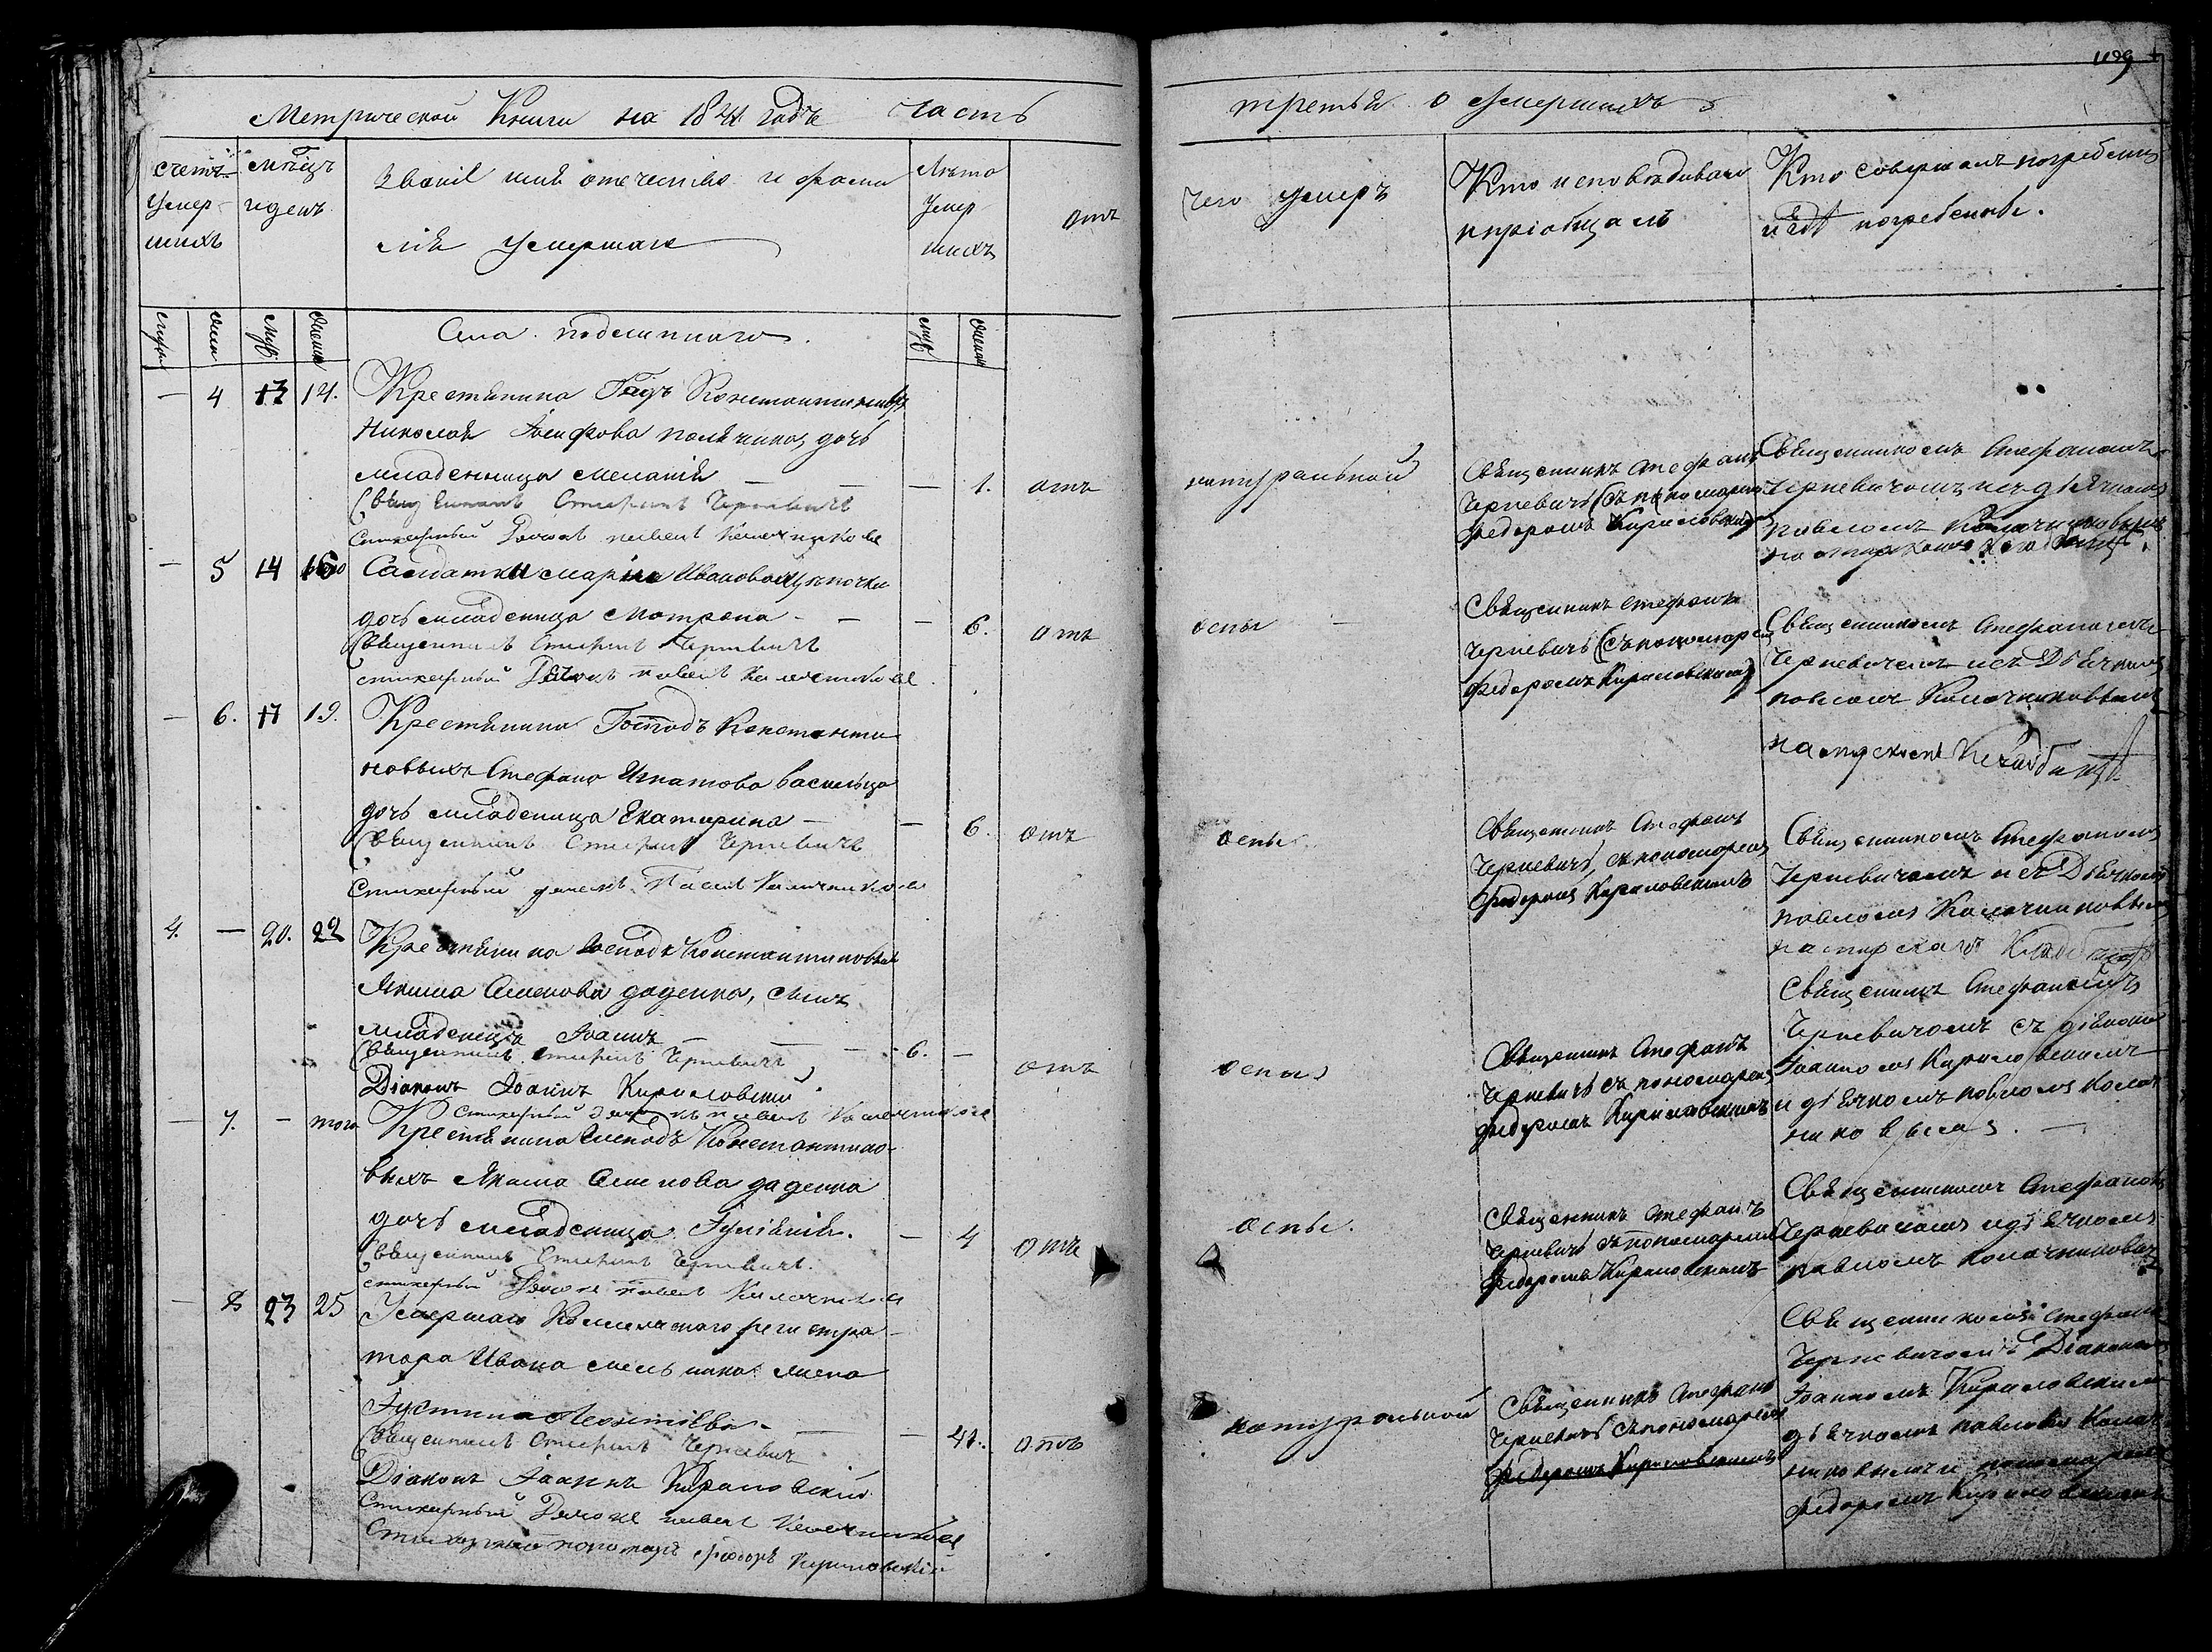 1139
Метрической Книги на 1841 годъ Часть третья о умершихъ
счетъ умер-шихъ
мѣцъ и день
Званіе имя отечество и фами
лія умершаго
Лѣта умер-шихъ
отъ
чего умеръ
Кто исповѣдывалъ
и пріобщалъ
Кто совершалъ погребеніе
и гдѣ погребены.
Села
— 4 13 14. Крестьянина Гпдъ Константиновыхъ
Николая Іосифова дочь
младенница Меланія — — — 1. отъ натуральной
Священникъ Стефанъ Черневичъ
Стихарный Дьячокъ Павелъ Калачниковъ
Священникъ Стефанъ
Черневичъ съ пономаремъ
Федоромъ Кириловскимъ
Священникомъ Стефаномъ
Черневичомъ и съ дьячкомъ
Павломъ Калачниковымъ
— 5 14 16 Салдатки Марии Ивановой
дочь младеница Матрона — — — 6. отъ оспы —
Священникъ Стефанъ Черневичъ
стихарный Дьячокъ Павелъ Калачниковъ
Священникъ Стефанъ
Черневичъ съ пономаремъ
Федоромъ Кириловскимъ
Священникомъ Стефаномъ
Черневичемъ и съ Дьячкомъ
Павломъ Калачниковымъ
— 6. 17 19. Крестьянина Господъ Константи
новыхъ Стефана Игнатова
дочь младеница Екатерина — — 6. отъ оспы
Священникъ Стефанъ Черневичъ
Стихарный дячекъ Павелъ Калачниковъ
Священникъ Стефанъ
Черневичъ, съ пономаремъ
Федоромъ Кириловскимъ
Священникомъ Стефаномъ
Черневичемъ и съ Дьячкомъ
Павломъ Калачниковымъ
4. — 20. 22 Крестьянина Господъ Константиновыхъ
Якима Семенова даденка, сынъ
младенецъ Іоаннъ — — — 6. — отъ оспы
Священникъ Стефанъ Черневичъ
Діаконъ Іоаннъ Кириловскій
Стихарный Дьячокъ Павелъ Калачниковъ
Священникъ Стефанъ
Черневичъ съ пономаремъ
Федоромъ Кириловскимъ
Священникомъ Стефаномъ
Черневичомъ съ діякономъ
Іоанномъ Кириловскимъ
и дьячкомъ Павломъ Калач
никовымъ. —
— 7. — того Крестьянина Господъ Константино-
выхъ Якима Семенова даденка
дочь младеница Іуліянія. — 4 отъ оспы.
Священникъ Стефанъ Черневичъ.
стихарный Дьячокъ Павелъ Калачниковъ
Священникъ Стефанъ
Черневичъ съ пономаремъ
Федоромъ Кириловскимъ
Священникомъ Стефаномъ
Черневичомъ и дьячкомъ
Павломъ Калачниковымъ
— 8 23 25 Умершаго Коллежскаго регистра-
тора Ивана жена
Іустина Леонтіева — — — 41. отъ натуральной
Священникъ Стефанъ Черневичъ
Діаконъ Іоаннъ Кириловскій
Стихарный Дьячокъ Павелъ Калачниковъ
Стихарный пономарь Федоръ Кириловскій
Священникъ Стефанъ
Черневичъ съ пономаремъ
Федоромъ Кириловскимъ
Священникомъ Стефаномъ
Черневичомъ Діакономъ
Іоанномъ Кириловскимъ
дьячкомъ Павломъ Калач
никовымъ и пономаремъ
Федоромъ Кириловскимъ